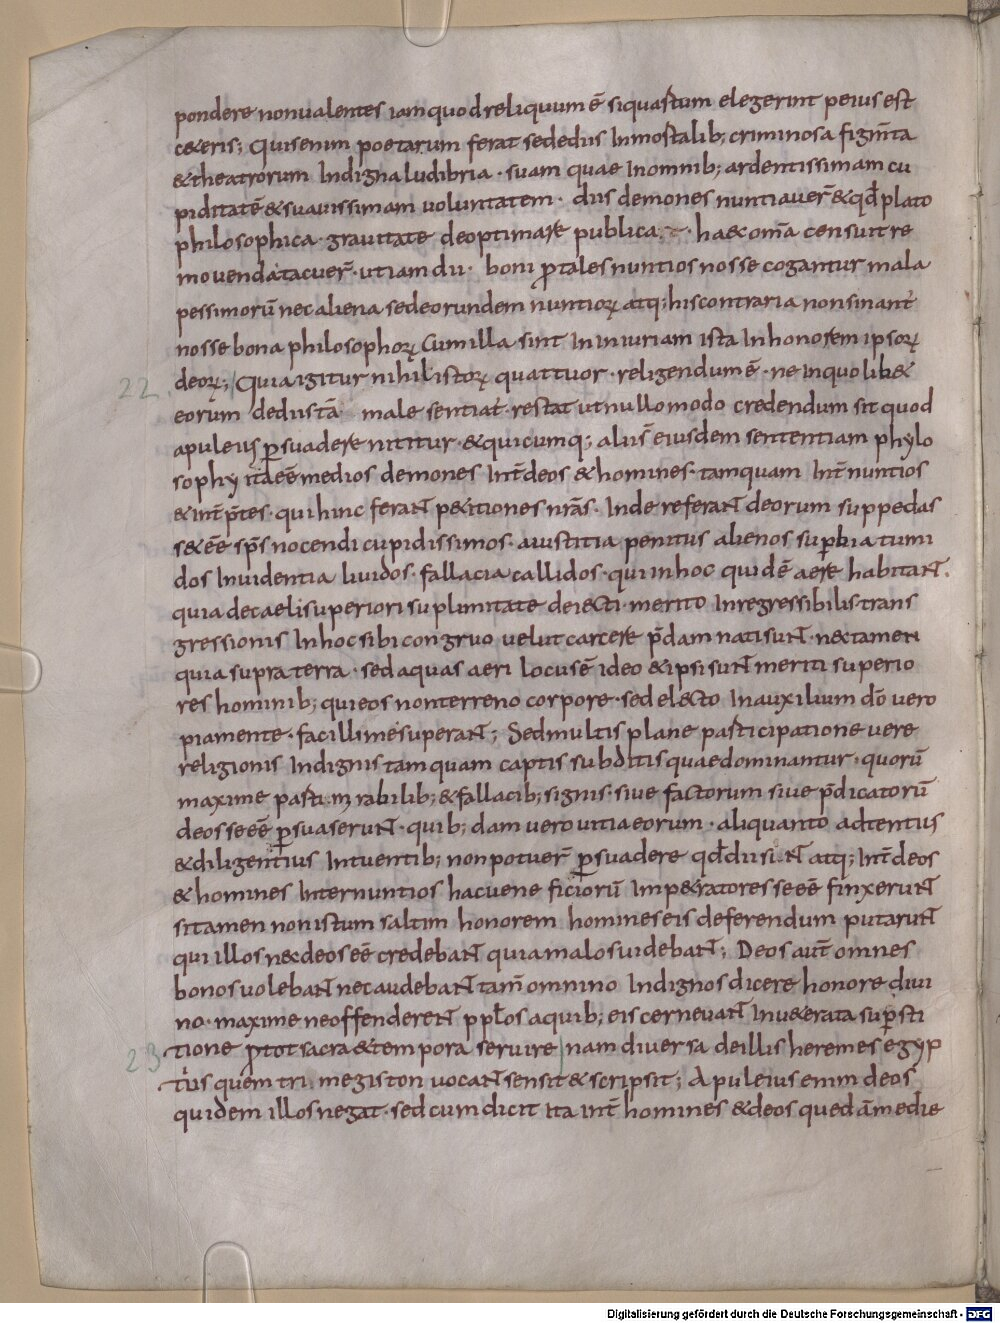 pondere nonualentes iamquodreliquum ē siquartum elegerint peius est
c&eris; Quisenim poetarum ferat sededus Inmortalib; criminosa figm̄ta
&theatrorum Indigna ludibria · suam quae Inomnib; ardentissimam cu
piditatē & suauissimam uoluntatem · dus demones nuntiauer̄ & qđ plato
philosophica grauitate deoptimare publica · haec om̄a censuit re
mouenda tacuer̄ · utiam du · boni ꝑ tales nuntios nosse cogantur mala
pessimorū nec aliena sed eorundem nuntioꝝ atq; his contraria non sinant̄
nosse bona philosophoꝝ Cum illa sint In iniuriam ista Inhonorem ipsoꝝ
22. deoꝝ; Quia igitur nihil istoꝝ quattuor · religendum ē · ne inquolib&
eorum dedus tā male sentiat̄ · restat ut nullo modo credendum sit quod
apuleius ꝑsuadere nititur · & quicumq; alii s̄ eiusdem sententiam phylo
sophy ita eē medios demones Int̄ deos & homines · tamquam Int̄ nuntios
& int̄ p̄tes · qui hinc ferant p&itiones nr̄as · Inde referant deorum suppedas
s& eē sp̄s nocendi cupidissimos · aiustitia penitus alienos suꝑbia tumi
dos Inuidentia liuidos · fallacia callidos · qui inhoc quidē aere habitant.
quia decaeli superiori suplimitate deiecti · merito Inregressibilis trans
gressionis Inhoc sibi congruo uelut carcere p̄damnati sunt · nectamen
quia supra terra · sed aquas aeri locus ē ideo & ipsi sunt meriti superio
res hominib; qui eos nonterreno corpore · sed electo Inauxilium dō uero
piamente · facillime superant; Sed multis plane participatione uere
religionis Indignis tamquam captis subditis quae dominantur · quorū
maxime parti mirabilib; & fallacib; signis · siue factorum siue p̄dicatorū
deos se eē ꝑsuaserunt · quib; dam uero uitia eorum · aliquanto adtentius
& diligentius Intuentib; non potuer̄ ꝑsuadere qđ dii sint atq; Int̄ deos
& homines Internuntios hac uene ficiorū Imp&ratores se eē finxerunt
sitamen non istum saltim honorem homines eis deferendum putarunt
qui illos nec deos eē credebant quia malos uidebant; Deos aut̄ omnes
bonos uolebant nec audebant tam̄ omnino Indignos dicere honore diui
no · maxime ne offenderent pp̄los a quib; eis cerneuant Inu&erata suꝑsti
23 tione ꝑ tot sacra & tempora seruire nam diuersa de illis heremes egyp
tius quem tri megiston uocant sensit & scripsit; Apuleius enim deos
quidem illos negat · sed cum dicit ita int̄ homines & deos quedā medie
Digitalisierung gefördert durch die Deutsche Forschungsgemeinschaft - DFG